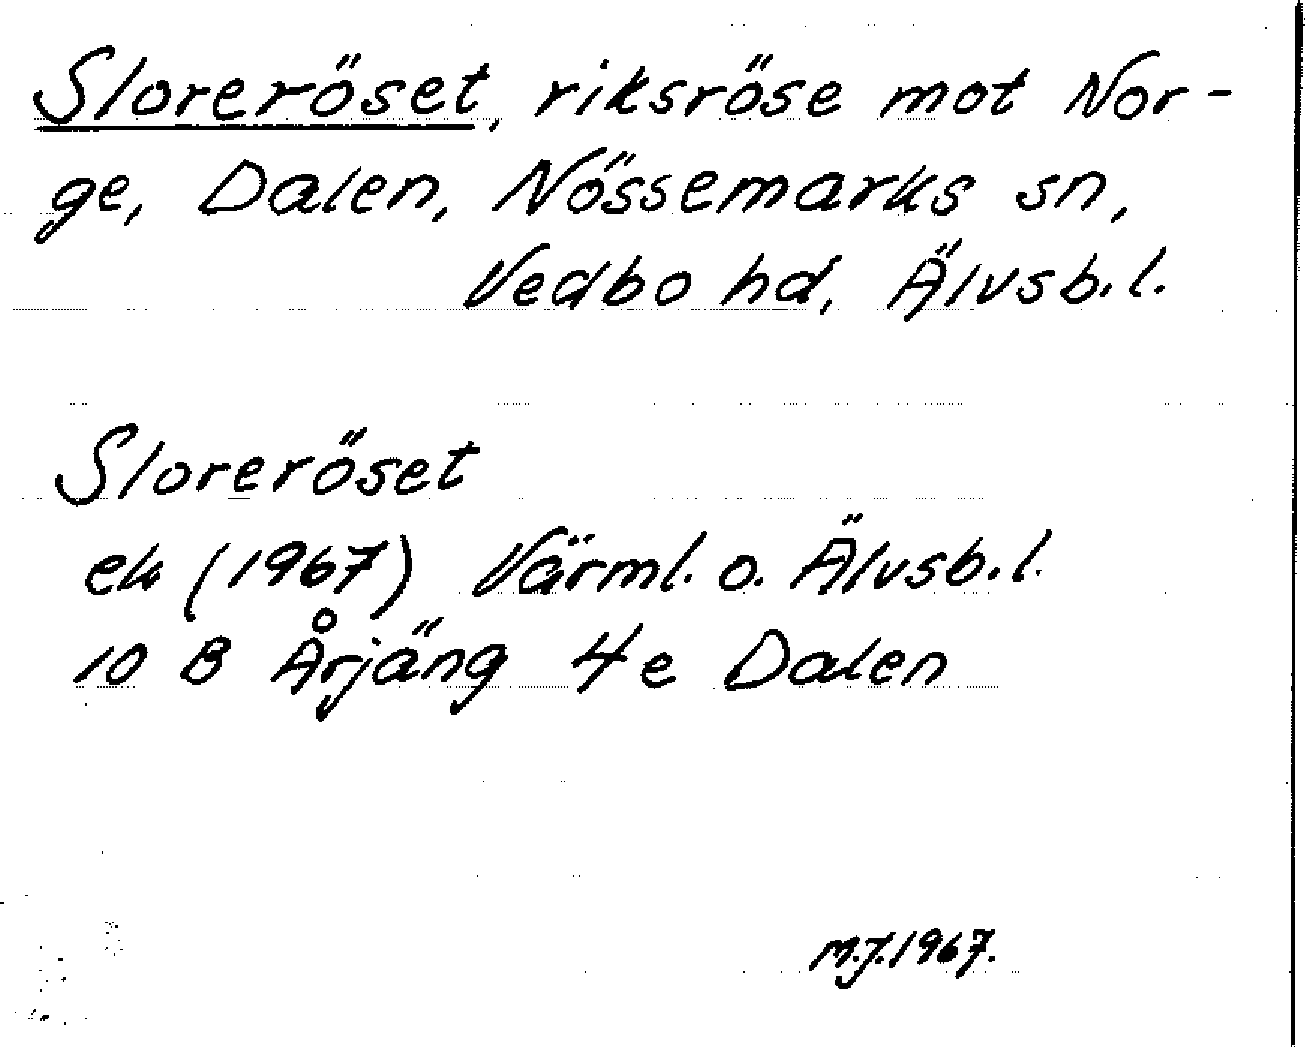 Sloreröset, riksröse mot Nor-
ge, Dalen, Nössemarks sn,
Vedbo hd, Älvsb.l.
Sloreröset
ek (1967) Värml. o. Älvsb.l.
10 B Årjäng 4e Dalen
M.J.1967.